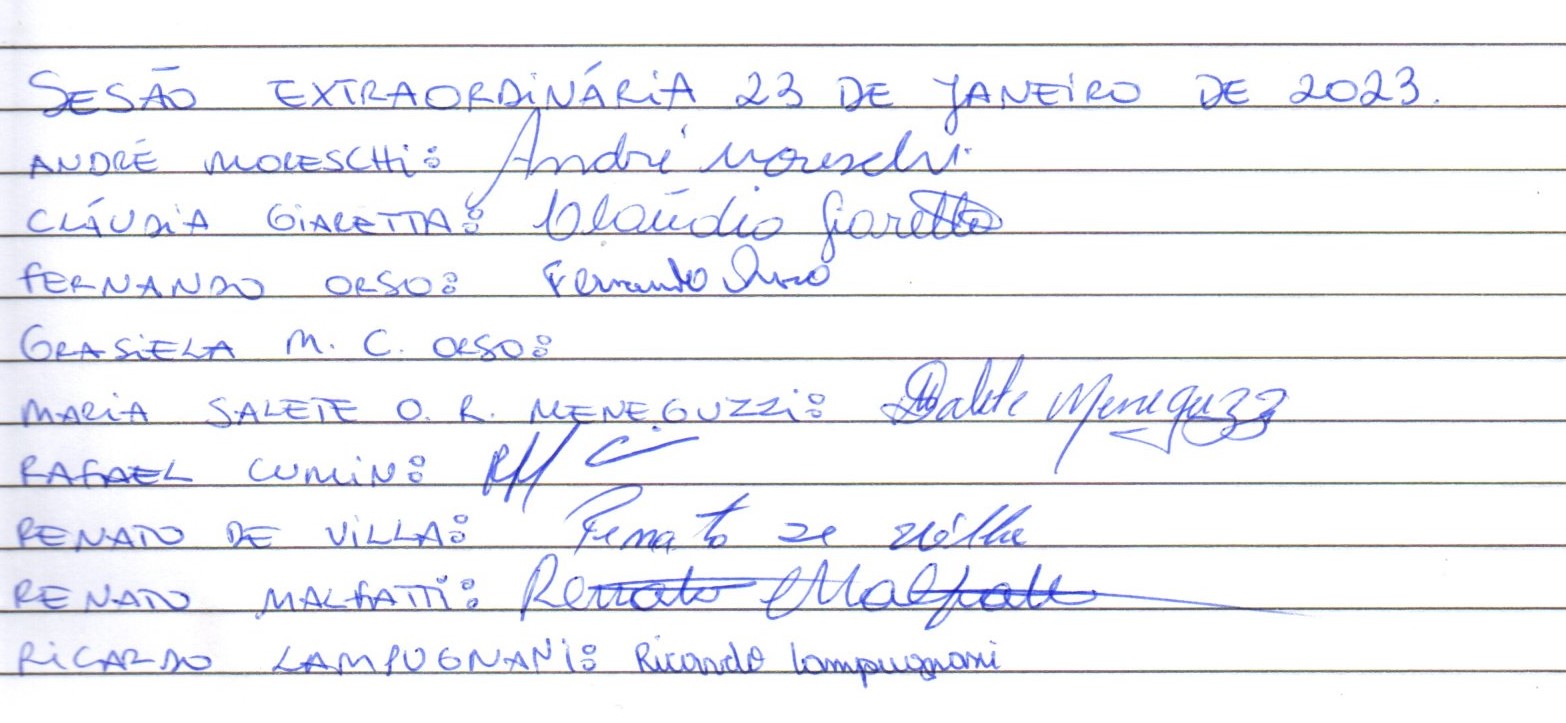 SESÃO EXTRAORDINÁRIA 23 DE JANEIRO DE 2023.
ANDRÉ MORESCHI: André Moreschi
CLÁUDIA GIARETTA: Claúdia Giaretta
FERNANDO ORSO: Fernando Orso
GRASIELA M. C. ORSO:
MARIA SALETE O. R. MENEGUZZI: MSalete Meneguzzi
RAFAEL CUMIN:
RENATO DE VILLA: Renato de Villa
RENATO MALFATTI: Renato Malfatti
RICARDO LAMPUGNANI: Ricardo Lampugnani